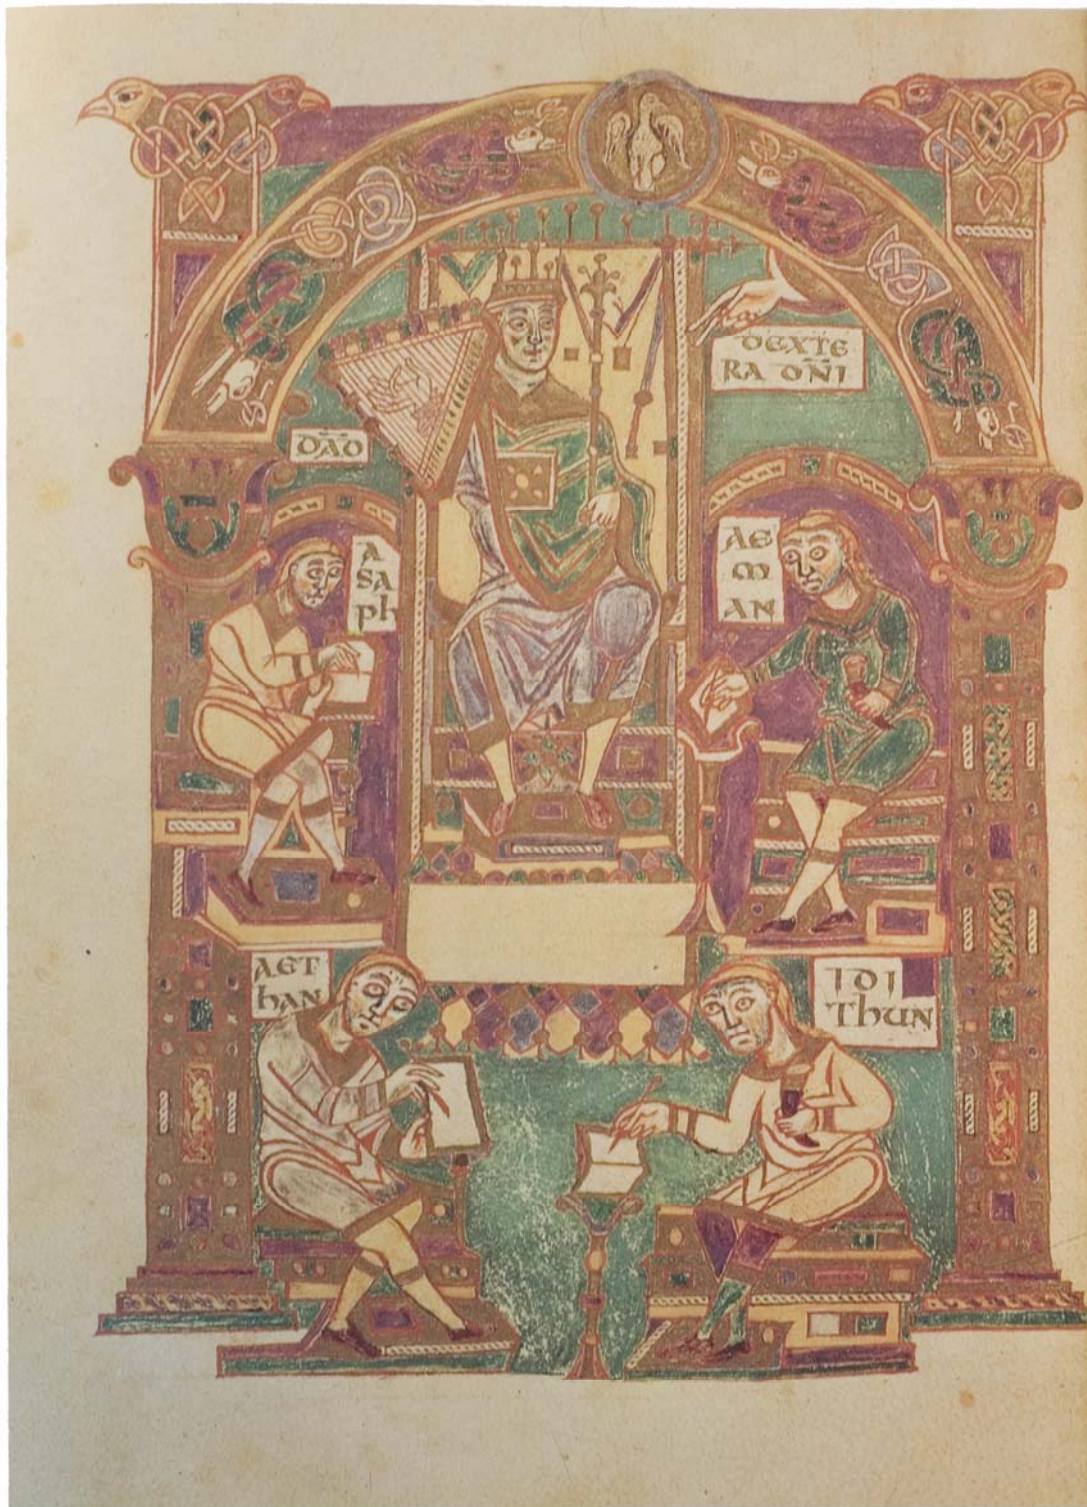 DEXTE
RA DNI
DAD
A
SA
ph
AE
M
AN
AET
hAN
IDI
ThUN